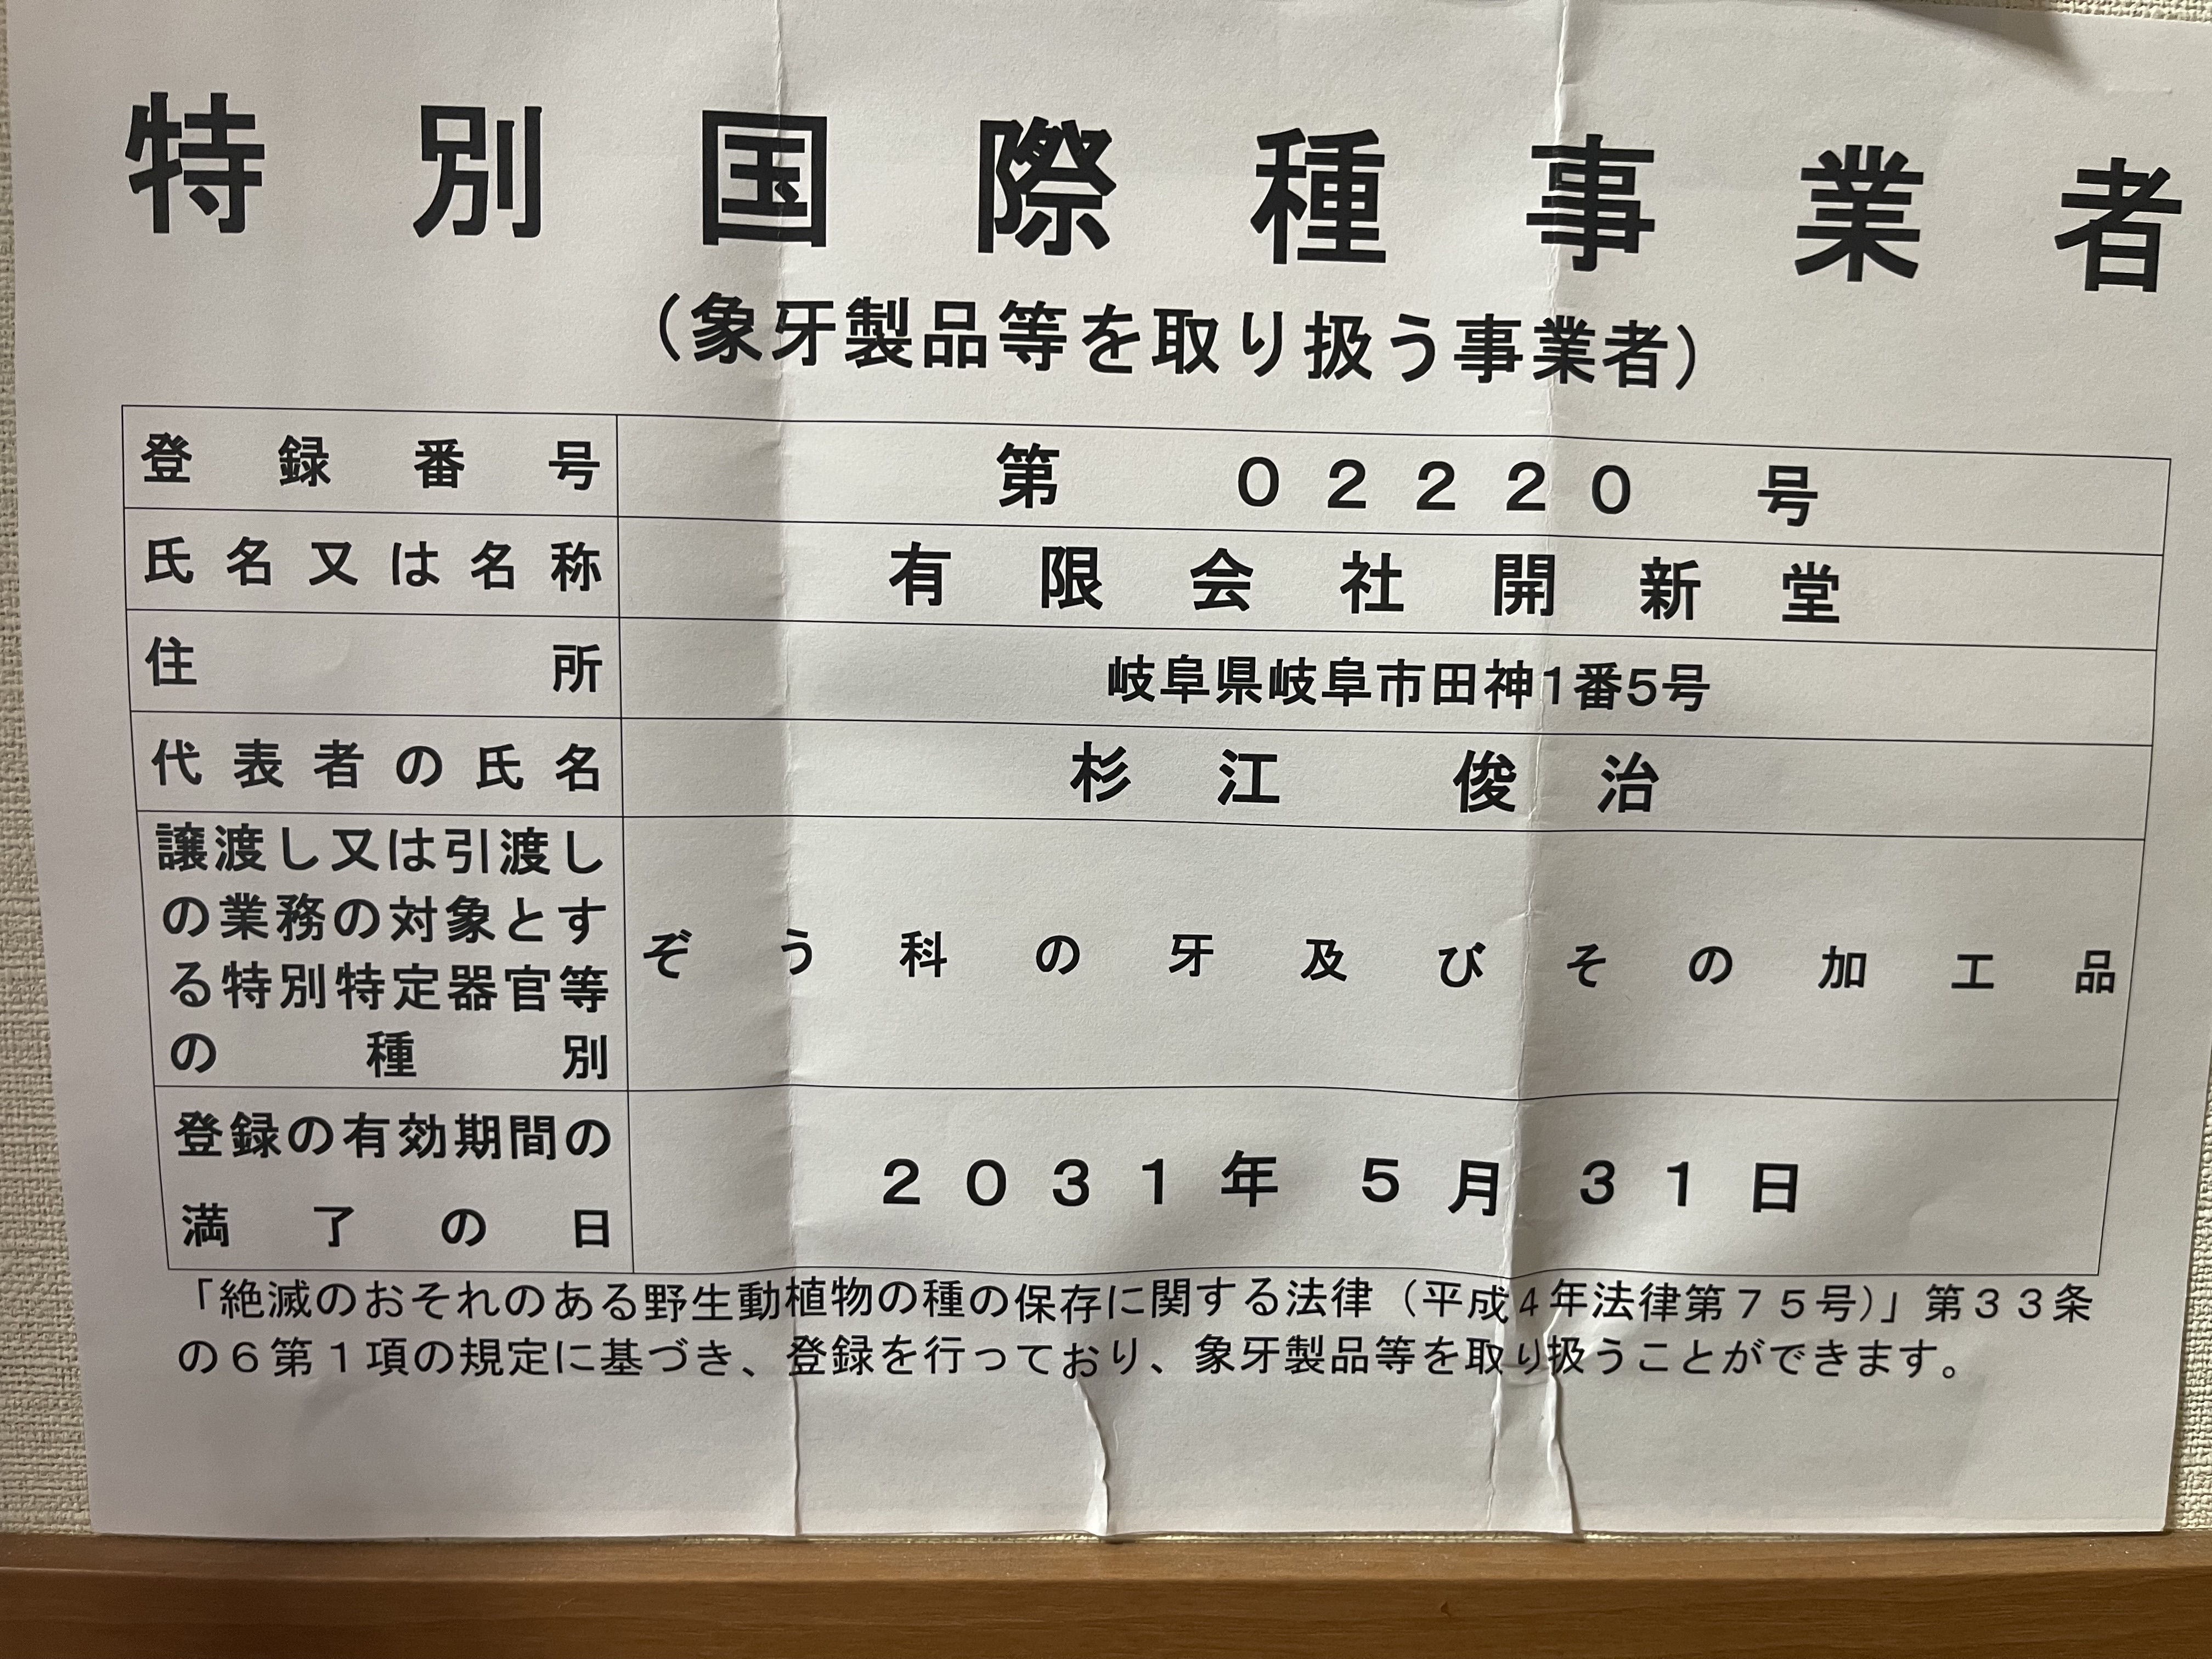 特別国際種事業者
（象牙製品等を取り扱う事業者）
登録番号 第 ０２２２０ 号
氏名又は名称 有限会社開新堂
住所 岐阜県岐阜市田神1番5号
代表者の氏名 杉江 俊治
譲渡し又は引渡し
の業務の対象とす
る特別特定器官等
の種別
ぞう科の牙及びその加工品
登録の有効期間の
満了の日
２０３１年 ５月 ３１日
「絶滅のおそれのある野生動植物の種の保存に関する法律（平成４年法律第７５号）」第３３条
の６第１項の規定に基づき、登録を行っており、象牙製品等を取り扱うことができます。